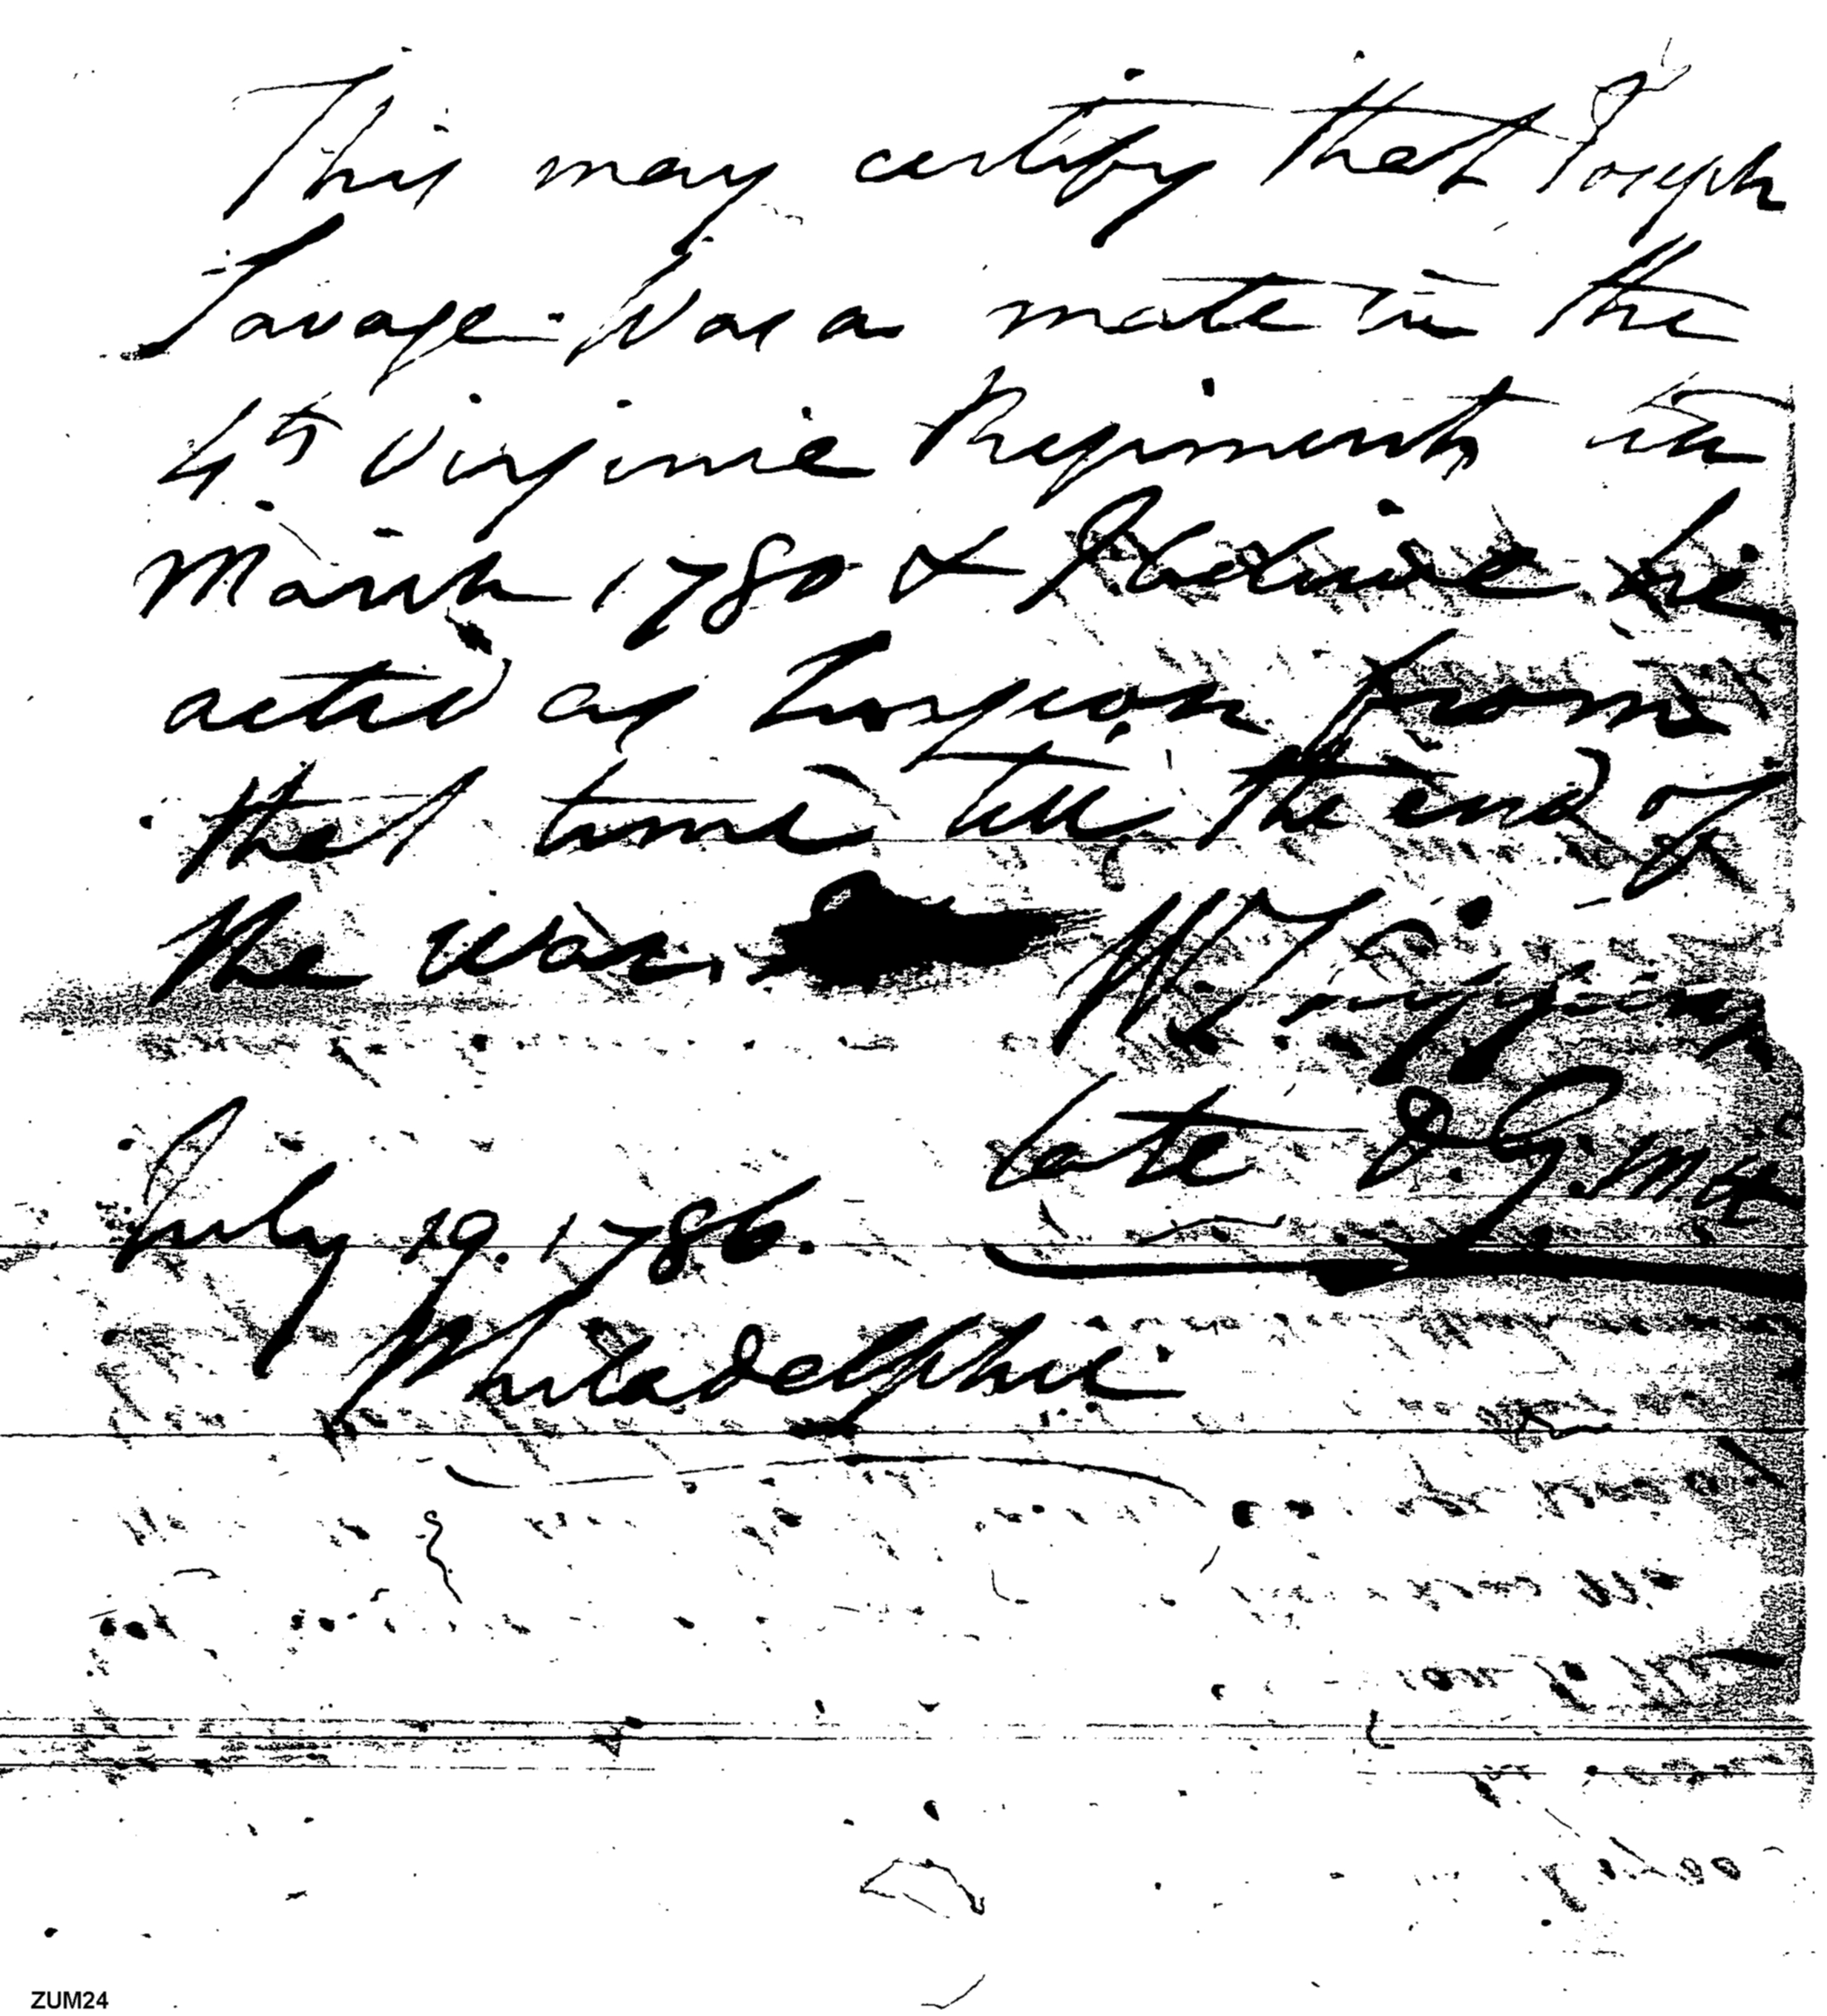 This may certify that Joseph
Savage was a mate in the
4th Virginia Regiment in
March 1780 & I believe he
acted as Surgeon from
that time till the end of
the war.
late D. G.
July 29. 1786.
Philadelphia
ZUM24